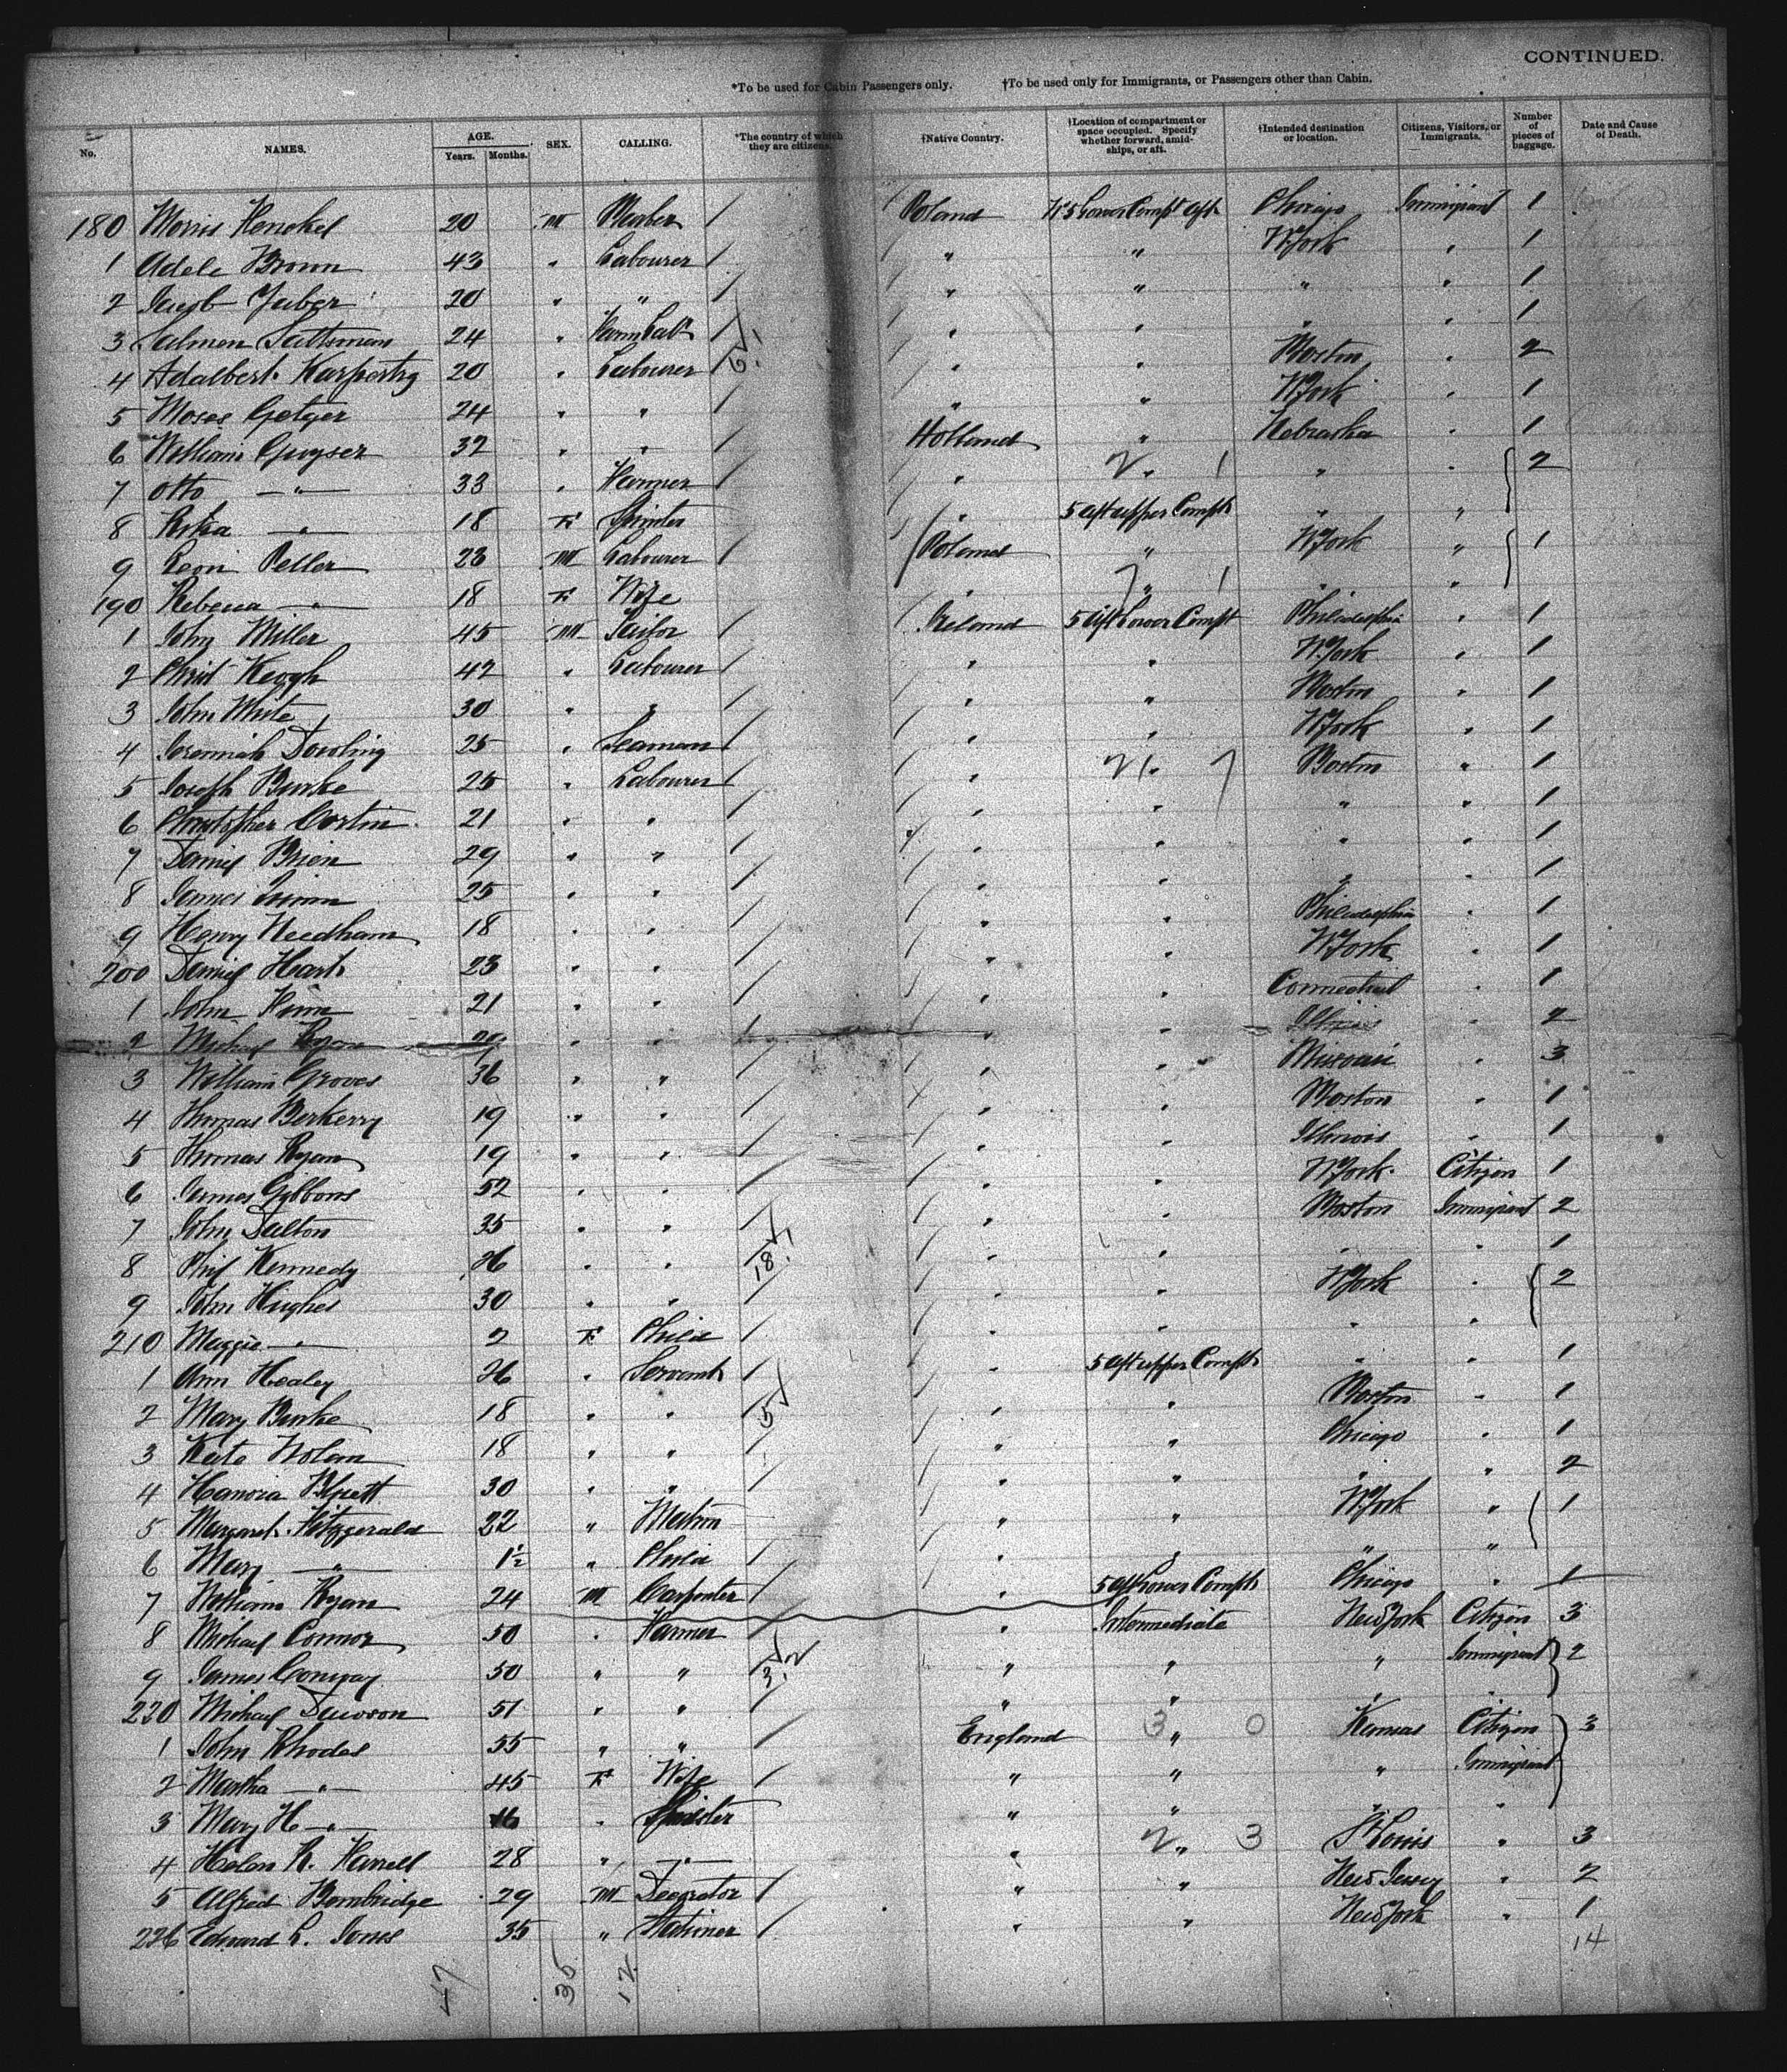 CONTINUED.
*To be used for Cabin Passengers only. †To be used only for Immigrants, or Passengers other than Cabin.
No. NAMES. AGE. Years. Months. SEX. CALLING. *The country of which they are citizens. †Native Country. †Location of compartment or space occupied. Specify whether forward, amidships, or aft. †Intended destination or location. Citizens, Visitors, or Immigrants. Number of pieces of baggage. Date and Cause of Death.
180 Morris Henchel 20 M / Poland Nº 5 Lower Compt Aft Chicago Immigrant 1
1 Adele Brown 43 " Labourer / " " N York " 1
2 Jacob Juber 20 " " / " " " " 1
3 Salmen 24 " Farm Labr / " " " " 1
4 Adalbert 20 " Labourer / " " Boston " 2
5 Moses Getzer 24 " " / " " N York " 1
6 William Guyser 32 " " / Holland " Nebraska " 1
7 Otto — " — 33 " Farmer / " " " " 2
8 — " — 18 F Spinster " 5 Aft upper Compt " "
9 Leon Peller 23 M Labourer / Poland " N York " 1
190 Rebecca — " — 18 F Wife " " "
1 John Miller 45 M Tailor / Ireland 5 Aft Lower Compt Philadelphia " 1
2 Christ Keogh 42 " Labourer / " " N. York " 1
3 John White 30 " " / " " Boston " 1
4 Jeremiah Dowling 25 " Seaman / " " N York " 1
5 Joseph Burke 25 " Labourer / " " Boston " 1
6 Christopher Costin 21 " " / " " " " 1
7 Daniel Brien 29 " " / " " " " 1
8 James Quinn 25 " " / " " " " 1
9 Henry Needham 18 " " / " " Philadelphia " 1
200 Daniel Hart 23 " " / " " N York " 1
1 John Finn 21 " " / " " Connecticut " 1
2 Michael Ryan " " / " " Illinois " 2
3 William Groves 36 " " / " " Missouri " 3
4 Thomas Berkerry 19 " " / " " Boston " 1
5 Thomas Ryan 19 " " / " " Illinois " 1
6 James Gibbons 52 " " / " " N York Citizen 1
7 John Dalton 35 " " / " " Boston Immigrant 2
8 Phil Kennedy 26 " " " " " " 1
9 John Hughes 30 " " / " " N York " 2
210 Maggie — " — 2 F Child / " " " "
1 Ann Healey 26 " Servant / " 5 Aft upper Compt " " 1
2 Mary Burke 18 " " / " " Boston " 1
3 Kate Nolan 18 " " / " " Chicago " 1
4 Hanora 30 " " / " " " " 2
5 Margaret Fitzgerald 22 " Matron " " N. York " 1
6 Mary — " — 1½ " Child / " " " "
7 William Ryan 24 M Carpenter / " 5 Aft Lower Compt Chicago " 1
8 Michael Connor 50 " Farmer / " Intermediate New York Citizen 3
9 James Conway 50 " " " " " Immigrant 2
220 Michael Dawson 51 " " / " " " "
1 John Rhodes 55 " " / England " Kansas Citizen 3
2 Martha — " — 45 F Wife / " " " Immigrant
3 Mary H — " — 16 " Spinster " " " "
4 Helen R. Harrell 28 " — " — " " St Louis " 3
5 Alfred Bombridge 29 M Decorator / " " New Jersey " 2
226 Edward L. Jones 35 " Stationer / " " New York " 1
14
47 35 12